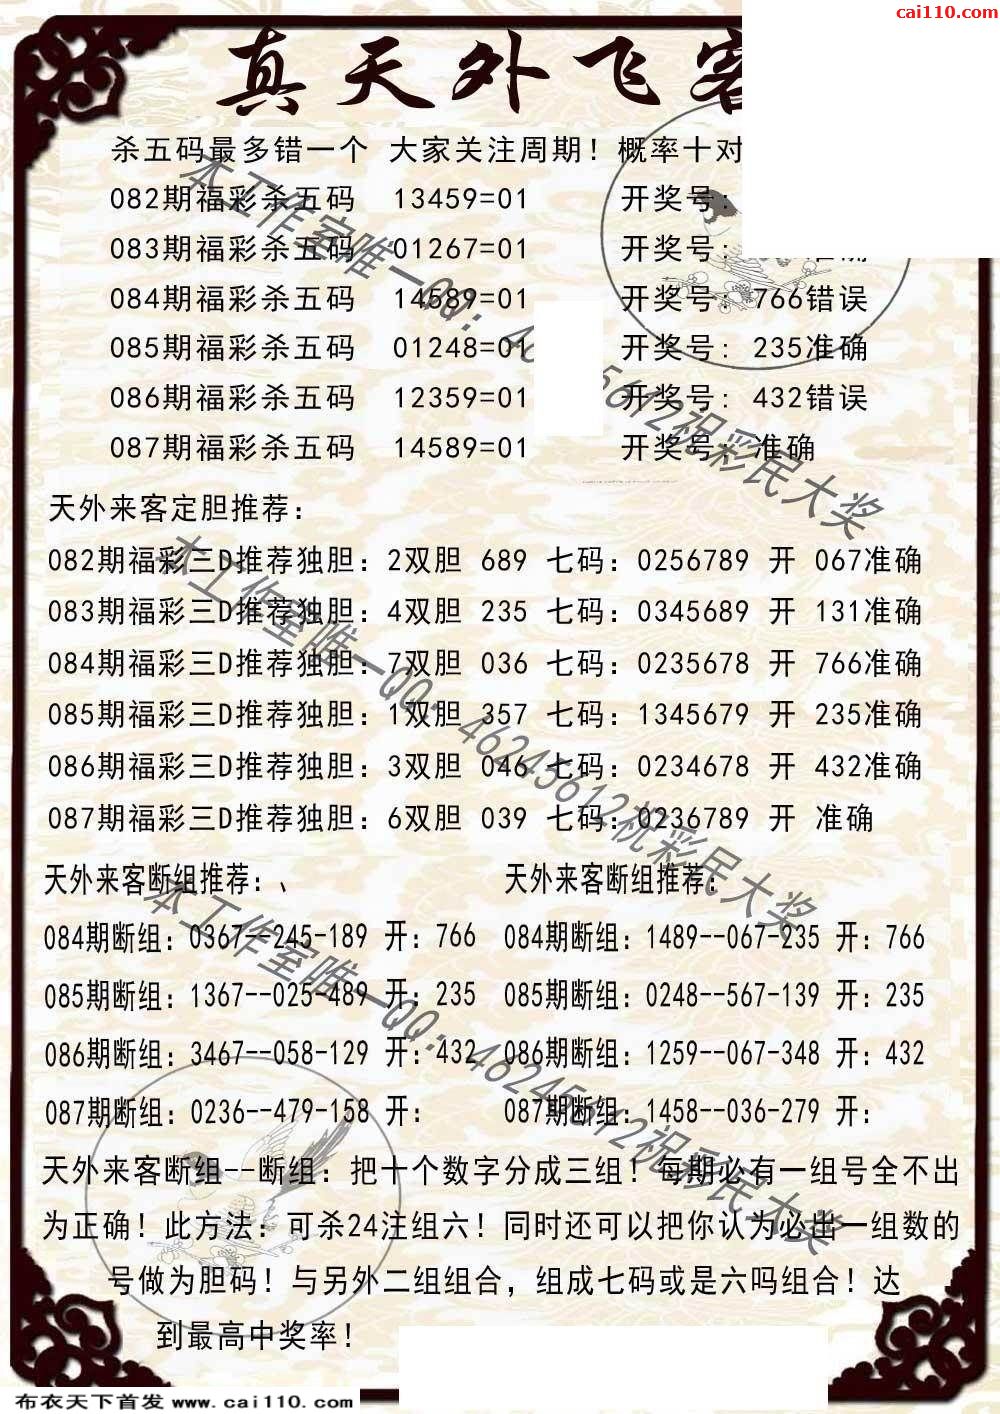 cai110.com
真天外飞客
杀五码最多错一个 大家关注周期！概率十对
082期福彩杀五码 13459=01 开奖号:
083期福彩杀五码 01267=01 开奖号: 准确
084期福彩杀五码 14589=01 开奖号: 766错误
085期福彩杀五码 01248=01 开奖号: 235准确
086期福彩杀五码 12359=01 开奖号: 432错误
087期福彩杀五码 14589=01 开奖号: 准确
天外来客定胆推荐:
082期福彩三D推荐独胆: 2双胆 689 七码: 0256789 开 067准确
083期福彩三D推荐独胆: 4双胆 235 七码: 0345689 开 131准确
084期福彩三D推荐独胆: 7双胆 036 七码: 0235678 开 766准确
085期福彩三D推荐独胆: 1双胆 357 七码: 1345679 开 235准确
086期福彩三D推荐独胆: 3双胆 046 七码: 0234678 开 432准确
087期福彩三D推荐独胆: 6双胆 039 七码: 0236789 开 准确
天外来客断组推荐:、 天外来客断组推荐:
084期断组: 0367--245-189 开: 766 084期断组: 1489--067-235 开: 766
085期断组: 1367--025-489 开: 235 085期断组: 0248--567-139 开: 235
086期断组: 3467--058-129 开: 432 086期断组: 1259--067-348 开: 432
087期断组: 0236--479-158 开: 087期断组: 1458--036-279 开:
天外来客断组--断组: 把十个数字分成三组！每期必有一组号全不出
为正确！此方法: 可杀24注组六！同时还可以把你认为必出一组数的
号做为胆码！与另外二组组合，组成七码或是六吗组合！达
到最高中奖率！
本工作室唯一QQ: 46245612祝彩民大奖
本工作室唯一QQ: 46245612祝彩民大奖
本工作室唯一QQ: 46245612祝彩民大奖
布衣天下首发 www.cai110.com